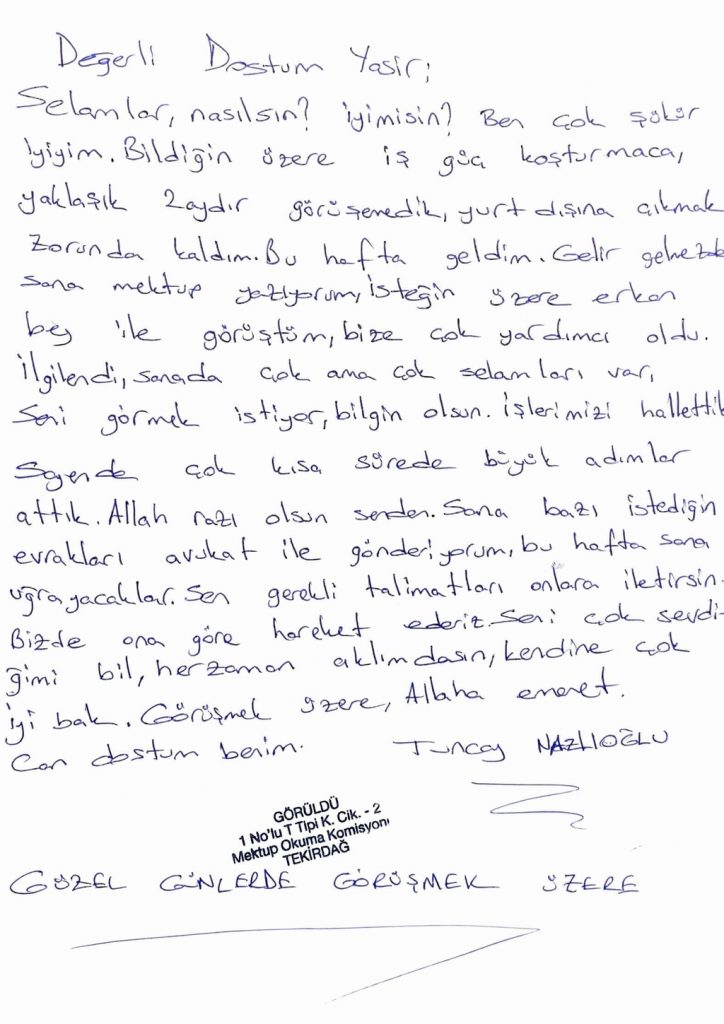 Değerli Dostum Yasir;
Selamlar, nasılsın? iyimisin? Ben çok şükür
iyiyim. Bildiğin üzere iş güç koşturmaca,
yaklaşık 2aydır görüşemedik, yurt dışına çıkmak
zorunda kaldım. Bu hafta geldim. Gelir gelmezde
sana mektup yazıyorum, isteğin üzere erkan
bey ile görüştüm, bize çok yardımcı oldu.
ilgilendi, sanada çok ama çok selamları var,
Seni görmek istiyor, bilgin olsun. işlerimizi hallettik
Sayende çok kısa sürede büyük adımlar
attık. Allah razı olsun senden. Sana bazı istediğin
evrakları avukat ile gönderiyorum, bu hafta sana
uğrayacaklar. Sen gerekli talimatları onlara iletirsin.
Bizde ona göre hareket ederiz. Seni çok sevdi-
ğimi bil, herzaman aklımdasın, kendine çok
iyi bak. Görüşmek üzere, Allaha emanet.
Can dostum benim. Tuncay NAZLIOĞLU
GÖRÜLDÜ
1 No'lu T Tipi K. Cik. - 2
Mektup Okuma Komisyonı
TEKİRDAĞ
GÜZEL GÜNLERDE GÖRÜŞMEK ÜZERE